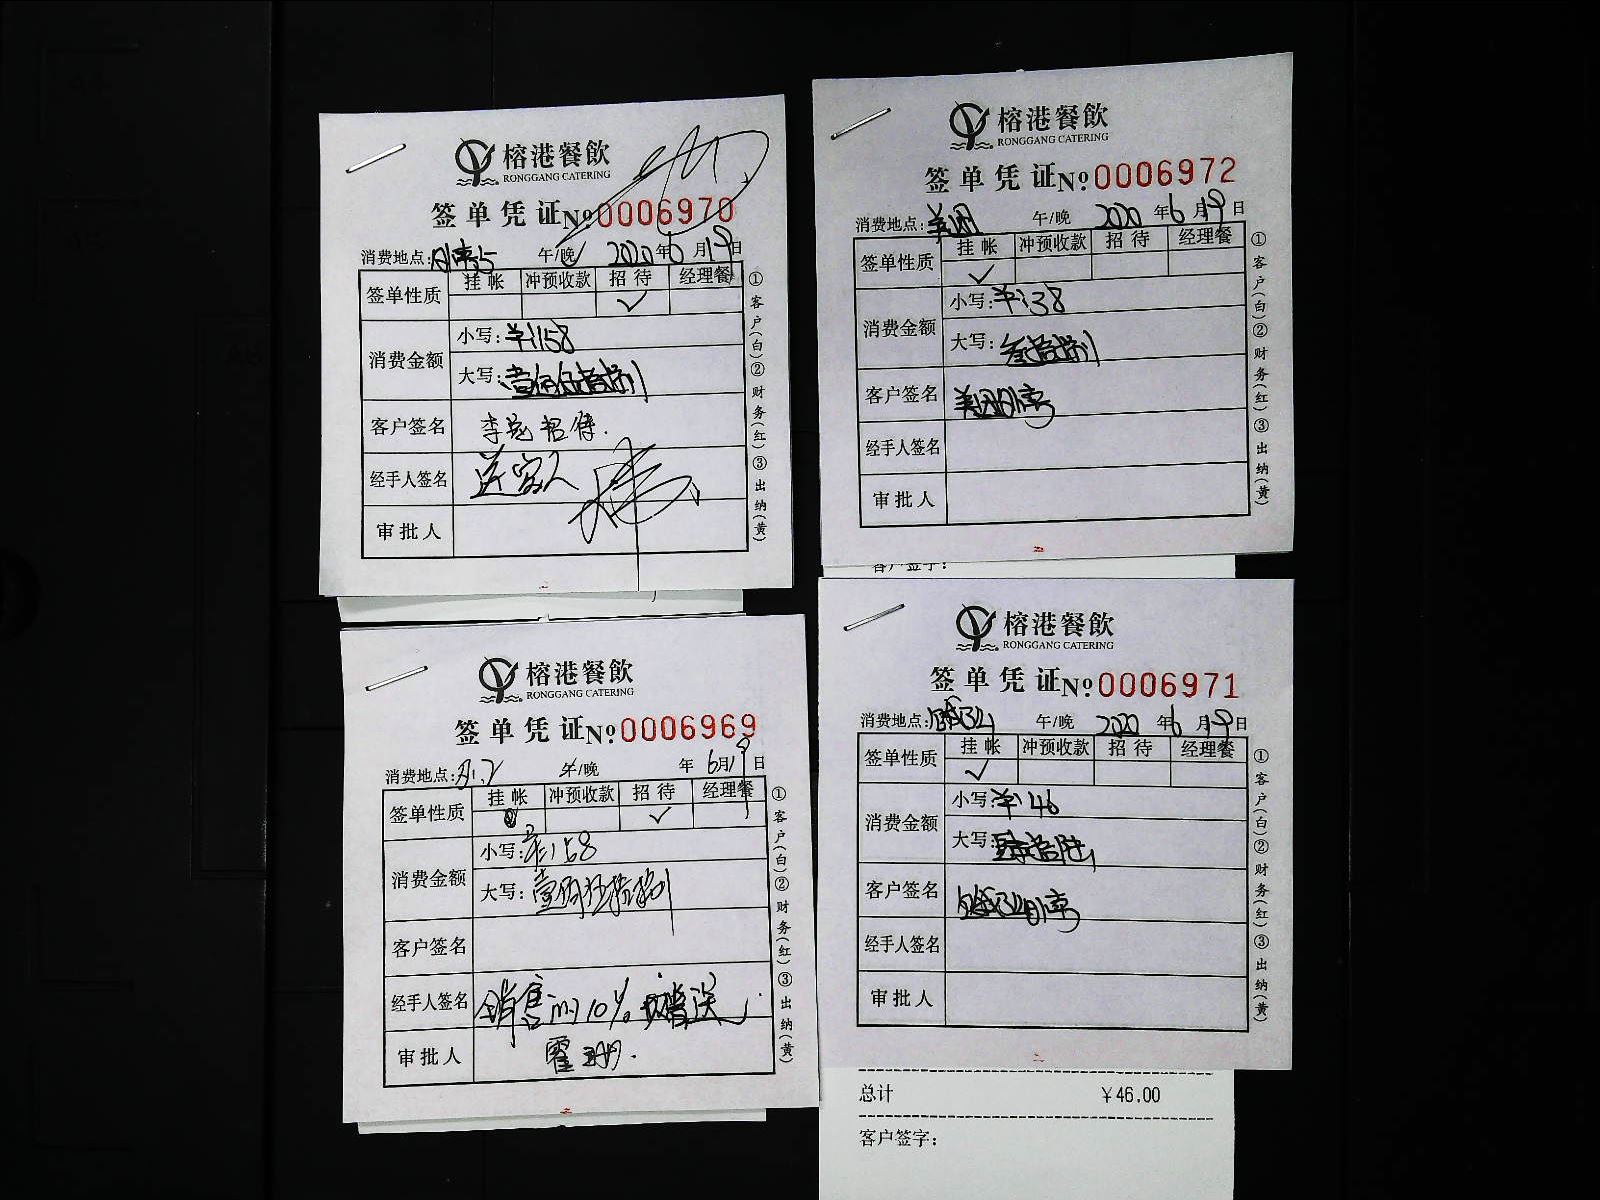 榕港餐飲
RONGGANG CATERING
签单凭证 №0006970
消费地点: 午/晚 2020年6月19日
签单性质 挂帐 冲预收款 招待 经理餐
✓
消费金额 小写:¥:158
大写:壹佰伍拾捌
客户签名 李总招待.
经手人签名 送客人
审批人
①客户(白)②财务(红)③出纳(黄)
榕港餐飲
RONGGANG CATERING
签单凭证 №0006972
消费地点:美团 午/晚 2020年6月19日
签单性质 挂帐 冲预收款 招待 经理餐
✓
消费金额 小写:¥:38
大写:叁拾捌
客户签名 美团
经手人签名
审批人
①客户(白)②财务(红)③出纳(黄)
客户签字:
榕港餐飲
RONGGANG CATERING
签单凭证 №0006969
消费地点: 午/晚 年6月19日
签单性质 挂帐 冲预收款 招待 经理餐
✓
消费金额 小写:¥:158
大写:壹佰伍拾捌
客户签名
经手人签名 销售的10%赠送
审批人 霍
①客户(白)②财务(红)③出纳(黄)
榕港餐飲
RONGGANG CATERING
签单凭证 №0006971
消费地点: 午/晚 2020年6月19日
签单性质 挂帐 冲预收款 招待 经理餐
✓
消费金额 小写:¥:46
大写:肆拾陆
客户签名
经手人签名
审批人
①客户(白)②财务(红)③出纳(黄)
总计 ¥46.00
客户签字: